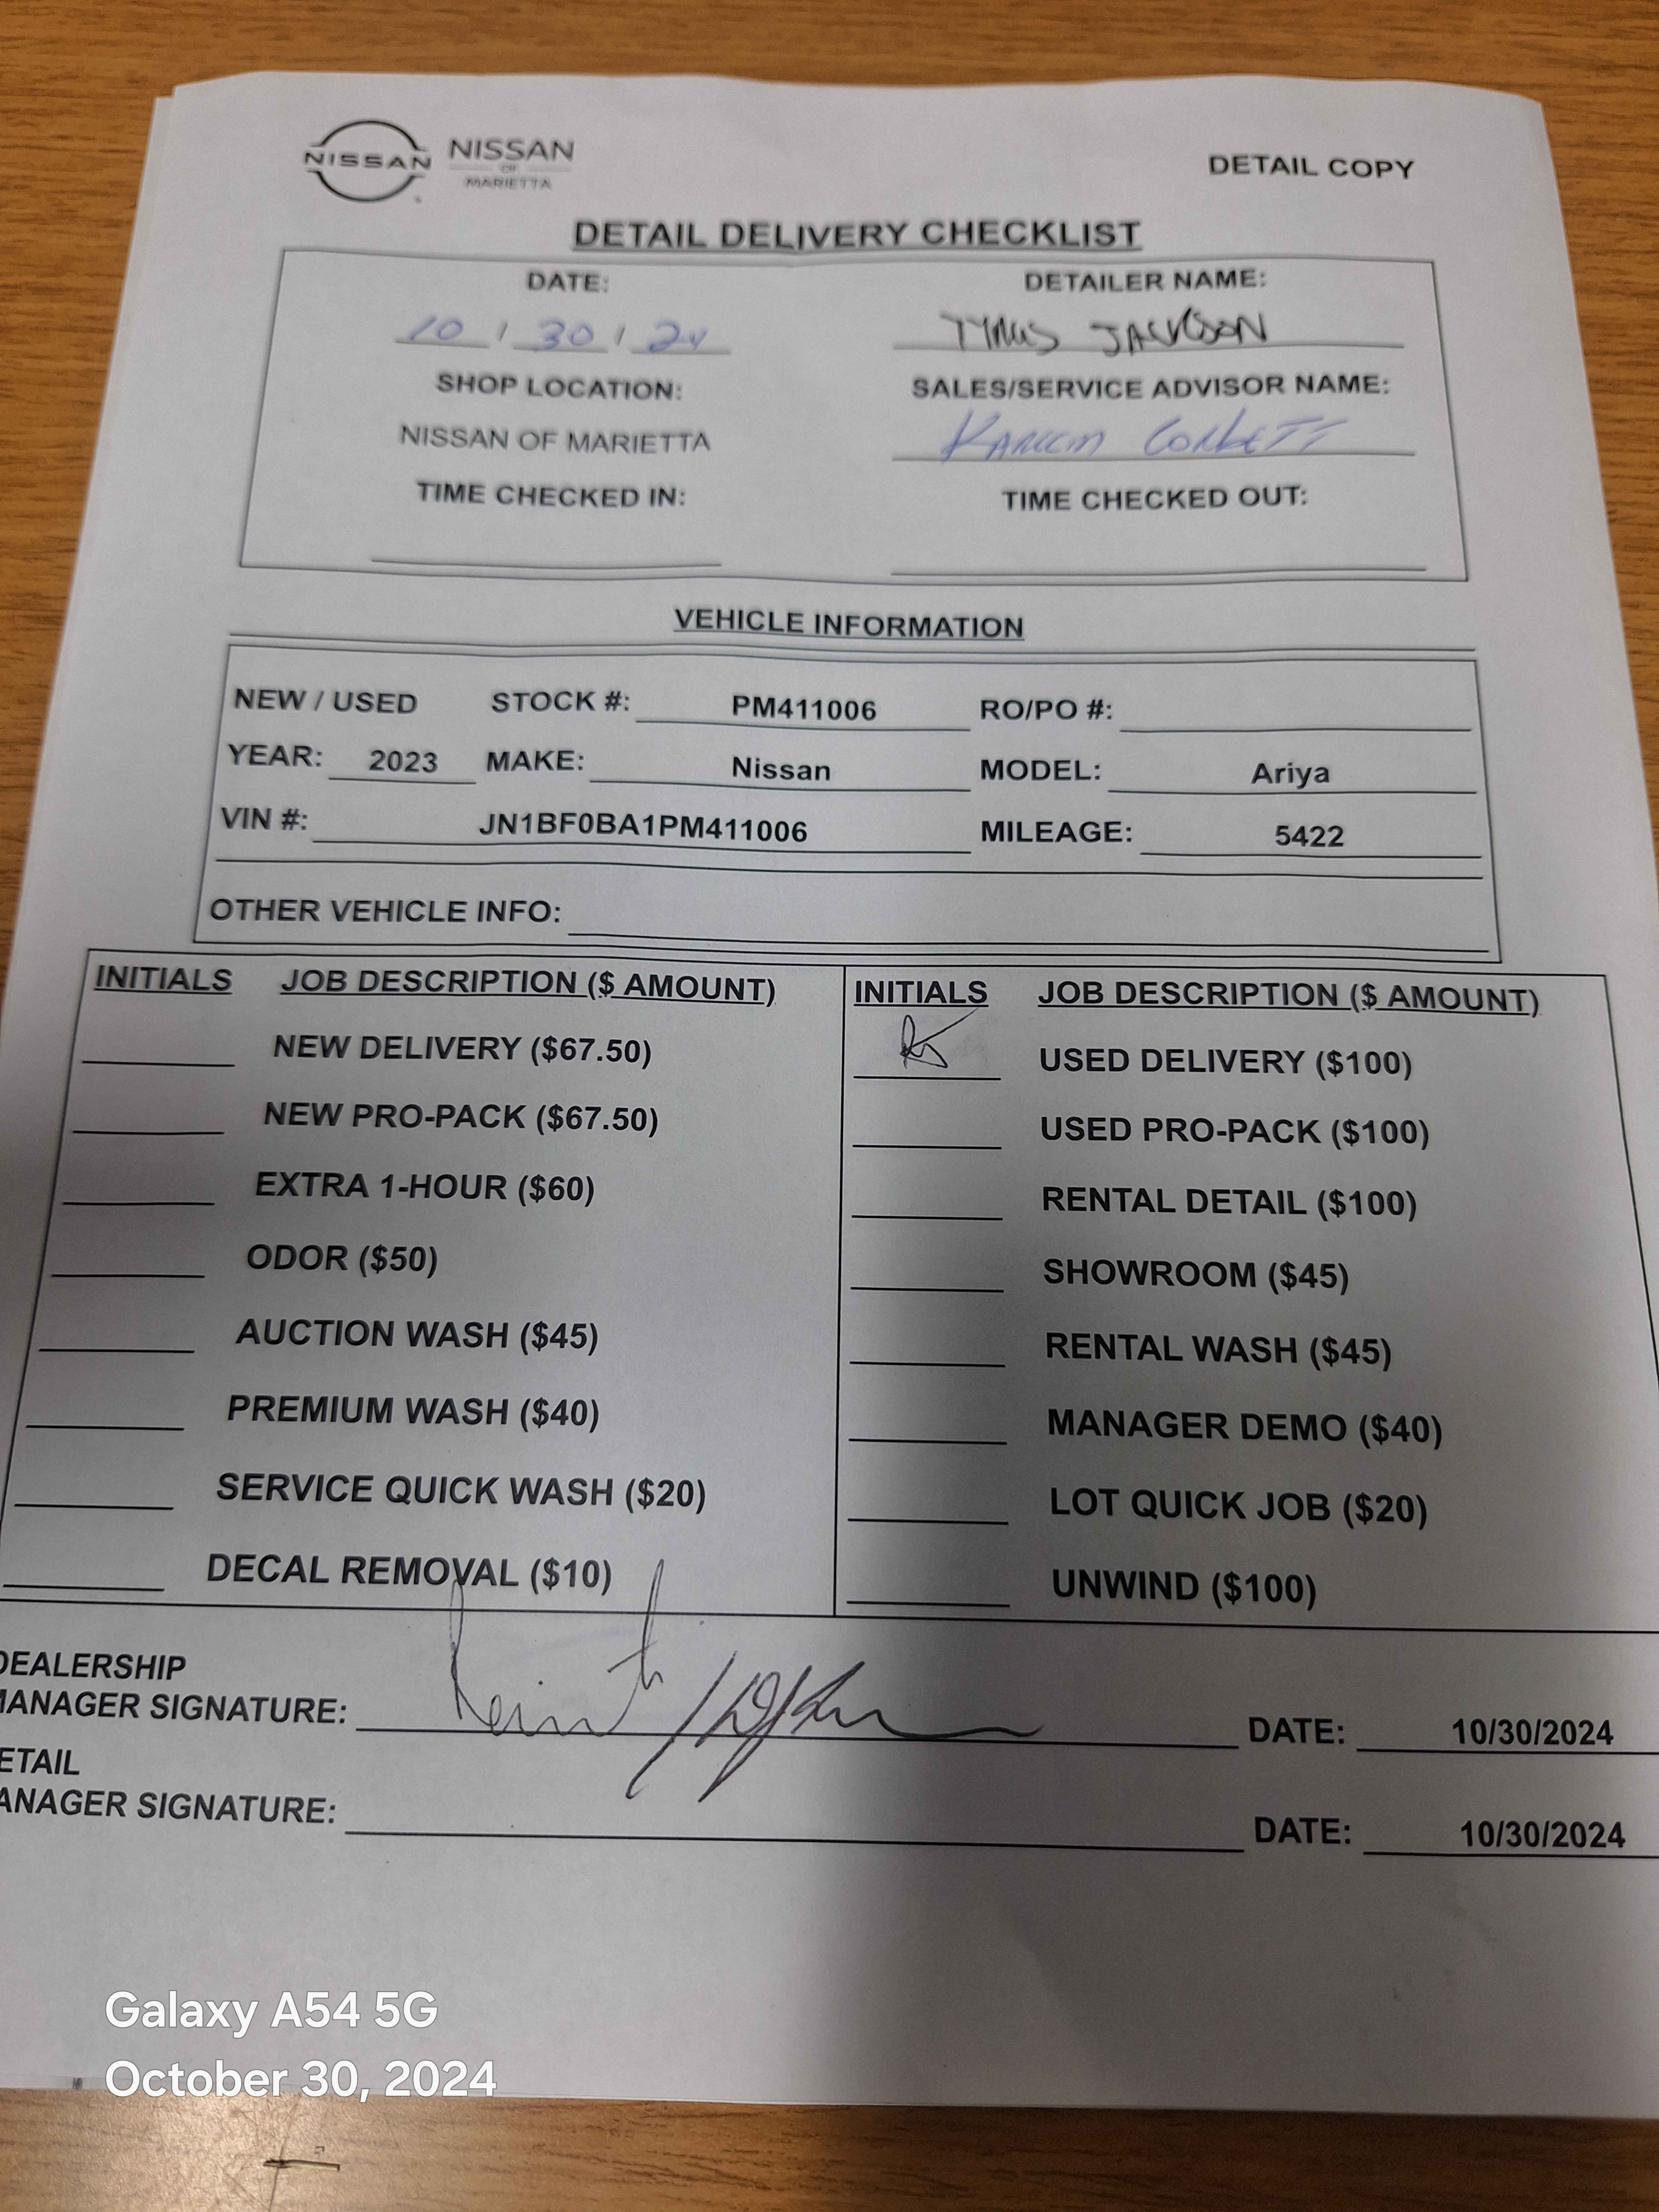 NISSAN NISSAN OF MARIETTA DETAIL COPY
DETAIL DELIVERY CHECKLIST
DATE: DETAILER NAME:
10 / 30 / 24 JACKSON
SHOP LOCATION: SALES/SERVICE ADVISOR NAME:
NISSAN OF MARIETTA Kareem Corbett
TIME CHECKED IN: TIME CHECKED OUT:
VEHICLE INFORMATION
NEW / USED STOCK #: PM411006 RO/PO #:
YEAR: 2023 MAKE: Nissan MODEL: Ariya
VIN #: JN1BF0BA1PM411006 MILEAGE: 5422
OTHER VEHICLE INFO:
INITIALS JOB DESCRIPTION ($ AMOUNT) INITIALS JOB DESCRIPTION ($ AMOUNT)
NEW DELIVERY ($67.50) USED DELIVERY ($100)
NEW PRO-PACK ($67.50) USED PRO-PACK ($100)
EXTRA 1-HOUR ($60) RENTAL DETAIL ($100)
ODOR ($50) SHOWROOM ($45)
AUCTION WASH ($45) RENTAL WASH ($45)
PREMIUM WASH ($40) MANAGER DEMO ($40)
SERVICE QUICK WASH ($20) LOT QUICK JOB ($20)
DECAL REMOVAL ($10) UNWIND ($100)
DEALERSHIP
MANAGER SIGNATURE: DATE: 10/30/2024
ETAIL
ANAGER SIGNATURE: DATE: 10/30/2024
Galaxy A54 5G
October 30, 2024